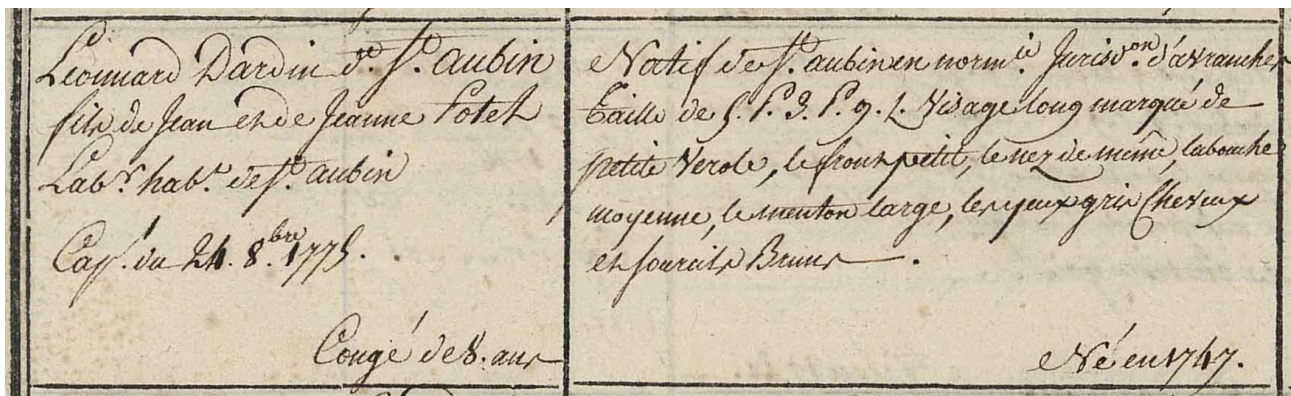 Léonnard Dardin dt. St. aubin
fils de Jean et de Jeanne Potel
Labr. habt. de St. aubin
Capl. du 24. 8.bre 1775.
Congé de 8. ans
Natif de St. aubin en normie. Jurison. d'avranches
taille de 5. P. 3. P. 9. L. Visage long marqué de
petite Verole, le front petit, le nez de même, la bouche
moyenne, le menton large, les yeux gris Cheveux
et sourcils Bruns.
Né en 1747.